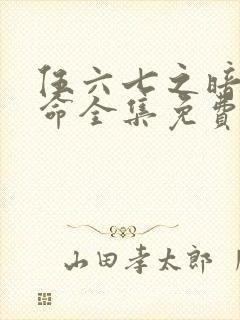 伍六七之暗
命全集免費
山田孝太郎